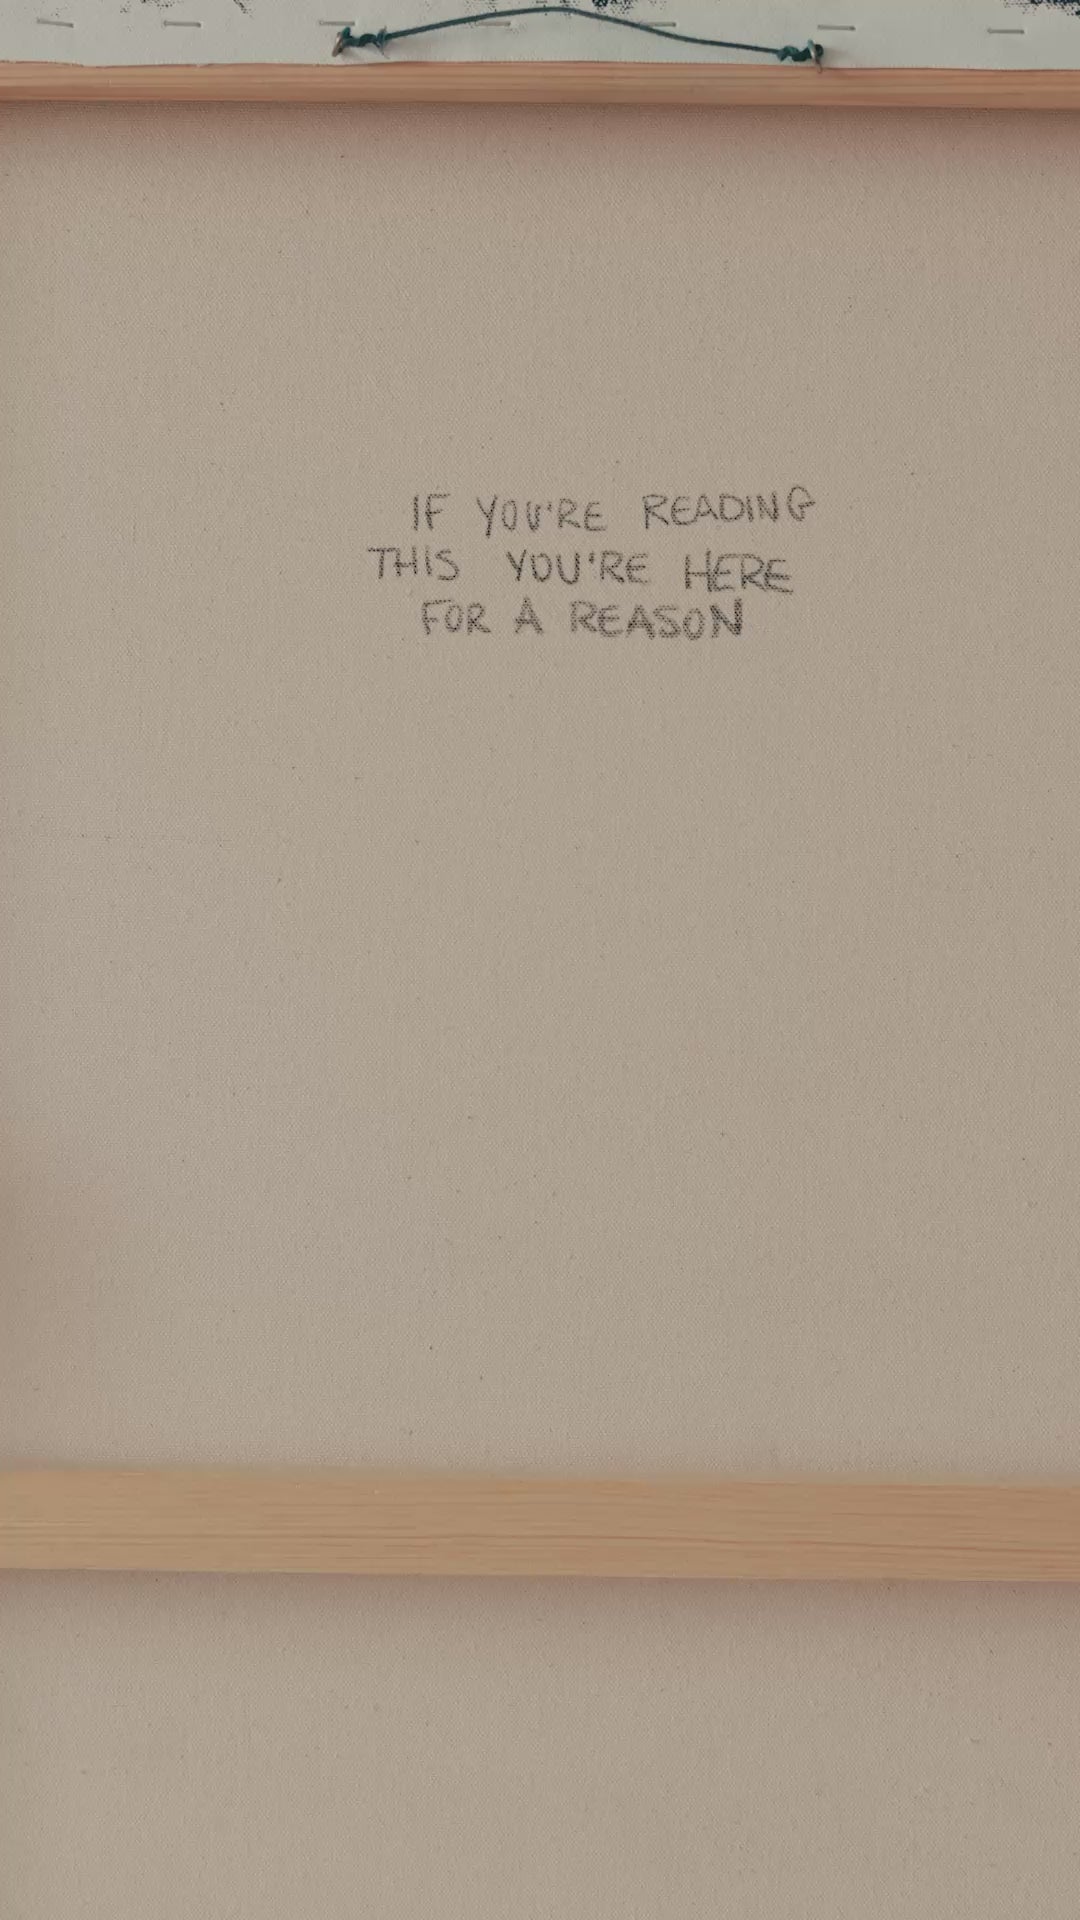 IF YOU'RE READING
THIS YOU'RE HERE
FOR A REASON